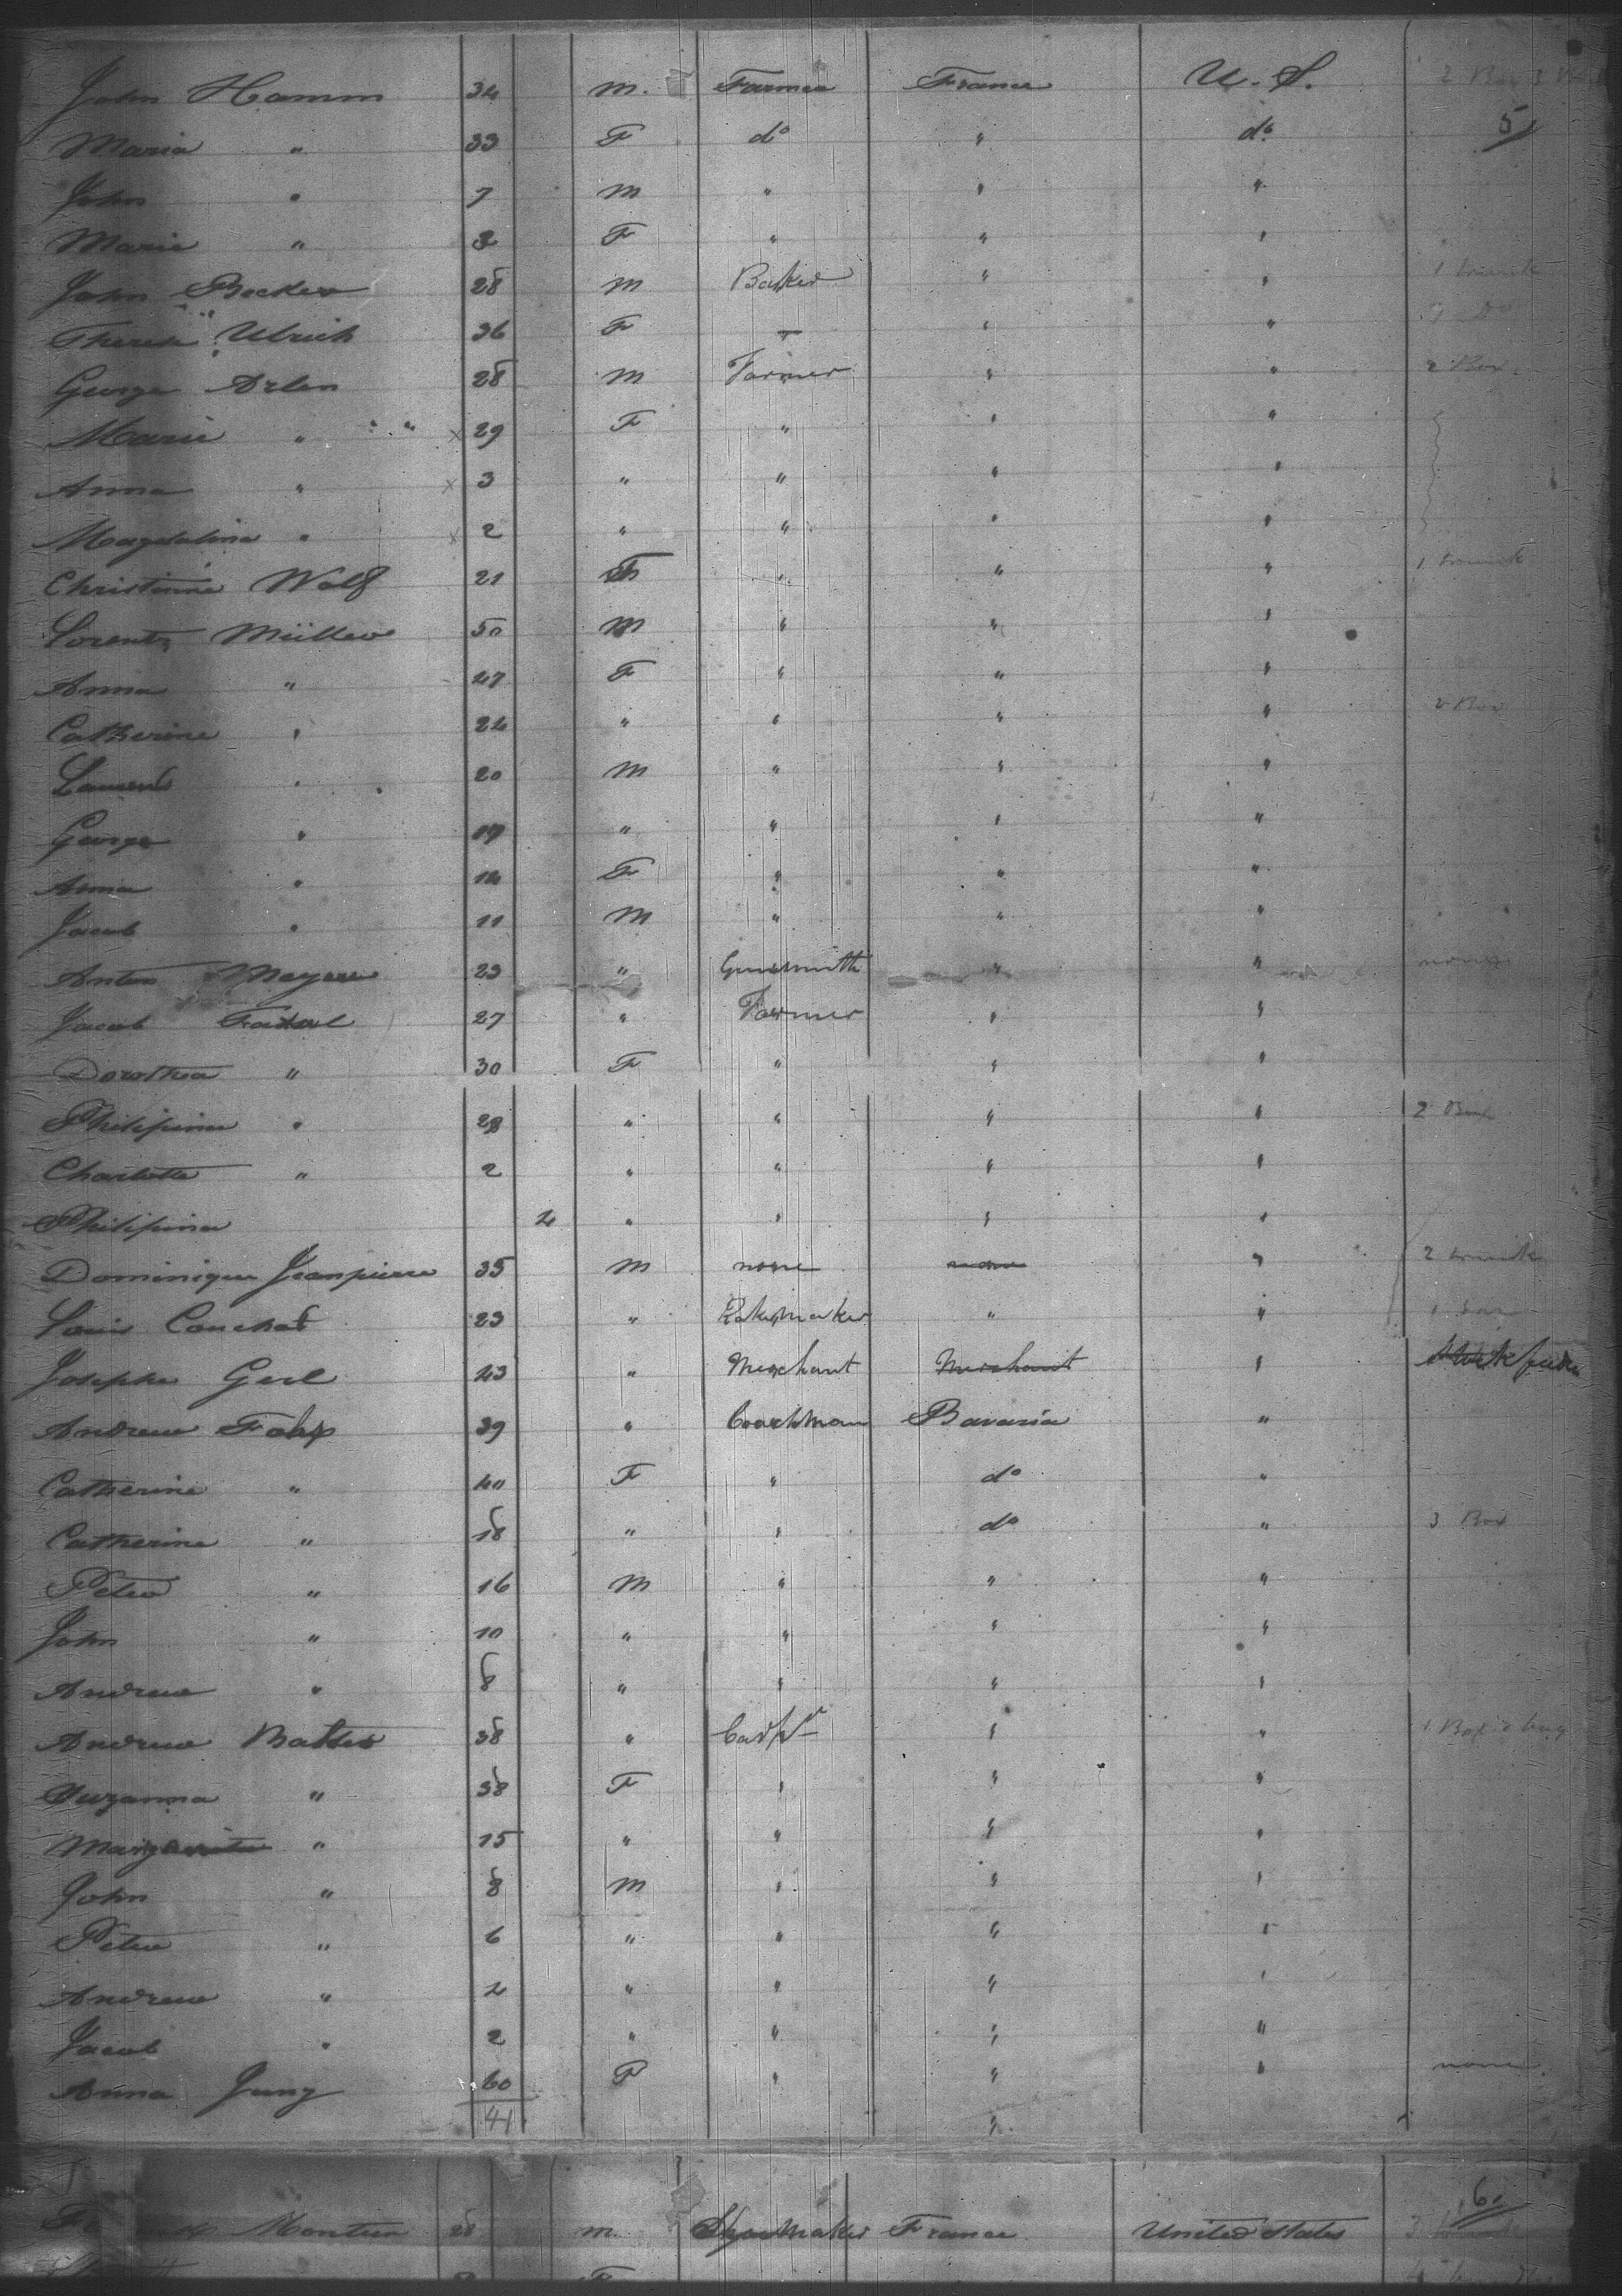 John Hamm 34 m. Farmer France U. S. 2 Box
Maria " 33 F do " do 5
John " 7 m " " "
Marie " 3 F " " "
John Becker 28 m Baker " " 1 trunk
Theresa Ulrich 36 F – " " 1 Do
George Arlen 28 m Farmer " " 2 Box
Marie " " x 29 F " " "
Anna " x 3 " " " "
Magdalina " x 2 " " " "
Christinne Wolf 21 F " " " 1 trunk
Lorentz Müller 50 m " " "
Anna " 47 F " " "
Catherine " 24 " " " " 2 Box
Laurent " 20 m " " "
George " 17 " " " "
Anna " 14 F " " "
Jacob " 11 m " " "
Anton Meyer 23 " Gunsmith " " none
Jacob 27 " Farmer " "
Dorothea " 30 F " " "
Philipina " 28 " " " " 2 Box
Charlotte " 2 " " " "
Philipina 4 " " " "
Dominique Jeanpierre 35 m none none " 2 trunk
Louis Couchat 23 " " "
Josephe Gerl 23 " Merchant Merchant "
Andrew Fahp 39 " Coachman Bavaria "
Catherine " 40 F " do "
Catherine " 18 " " do " 3 Box
Peter " 16 m " " "
John " 10 " " " "
Andrew " 8 " " " "
Andrew Baltes 38 " Carpr " " 1 Box 2 bag
Suzanna " 38 F " " "
Margaretta " 15 " " " "
John " 8 m " " "
Peter " 6 " " " "
Andrew " 4 " " " "
Jacob " 2 " " " "
Anna Jung 60 F " " " none
41 "
6
Mantier 28 m. Shoemaker France United States 3 trunks
F